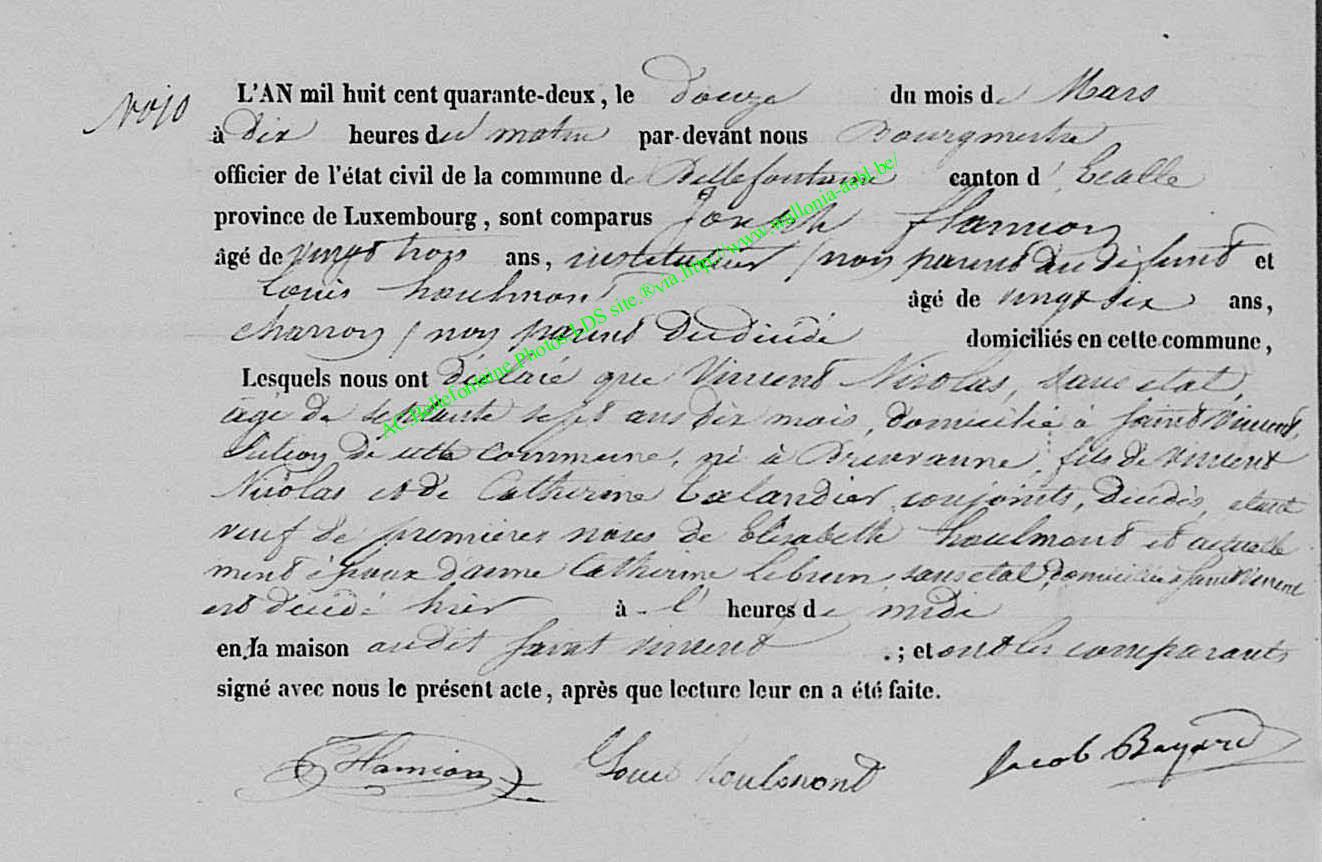 N° 10
L'AN mil huit cent quarante-deux, le douze du mois de Mars
à dix heures du matin par-devant nous Bourgmestre
officier de l'état civil de la commune de Bellefontaine canton d' Etalle
province de Luxembourg, sont comparus Joseph Hamion
âgé de vingt trois ans, instituteur (non parent du défunt et
Louis houlmont âgé de vingt six ans,
charron (non parent du décédé domiciliés en cette commune,
Lesquels nous ont déclaré que Vincent Nicolas, sans etat,
agé de septante sept ans dix mois, domicilié à saint Vincent,
section de cette commune, né à Breuvanne, fils de vincent
Nicolas et de Catherine conjoints, décédés, etant
veuf de premières noces de Elisabeth houlmont et actuelle
ment époux d'anne Catherine Lebrun, sans etat, domiciliée à saint Vincent
est décédé hier à l' heures de midi
en la maison audit saint vincent .; et ont les comparants
signé avec nous le présent acte, après que lecture leur en a été faite.
Hamion Louis houlmont Jacob Bayard
AC.Bellefontaine.Photos.LDS site.®via.http://www.wallonia-asbl.be/